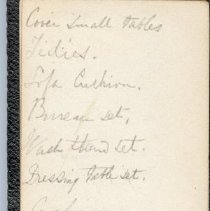 Cover small tables
Tidies.
Sofa Cushion.
Bureau set.
Wash stand set.
Dressing table set.